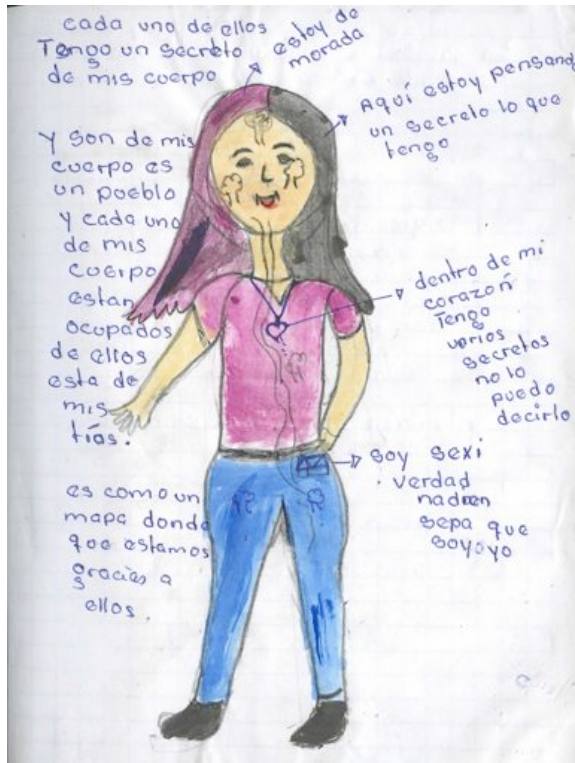 cada uno de ellos
Tengo un secreto
de mis cuerpo
estoy de
morada
Aquí estoy pensand
un secreto lo que
tengo
Y son de mis
cuerpo es
un pueblo
y cada uno
de mis
cuerpo
estan
ocupados
de ellos
esta de
mis
tías.
dentro de mi
corazoñ
Tengo
varios
secretos
no lo
puedo
decirlo
soy sexi
verdad
nadien
sepa que
soyoyo
es como un
mapa donde
que estamos
gracias a
ellos.